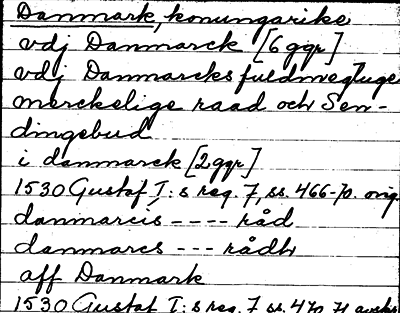 Danmark, konungarike
vdj Danmarck [6 ggr]
vdj Danmarcks fuldmegtuge
merckelige raad och Sen-
dingebud
i danmarck [2 ggr]
1530 Gustaf I:s reg. 7, ss. 466-70. orig.
danmarcis ---- råd
danmarcs --- rådh
aff Danmark
1530 Gustaf I:s reg. 7 ss. 470